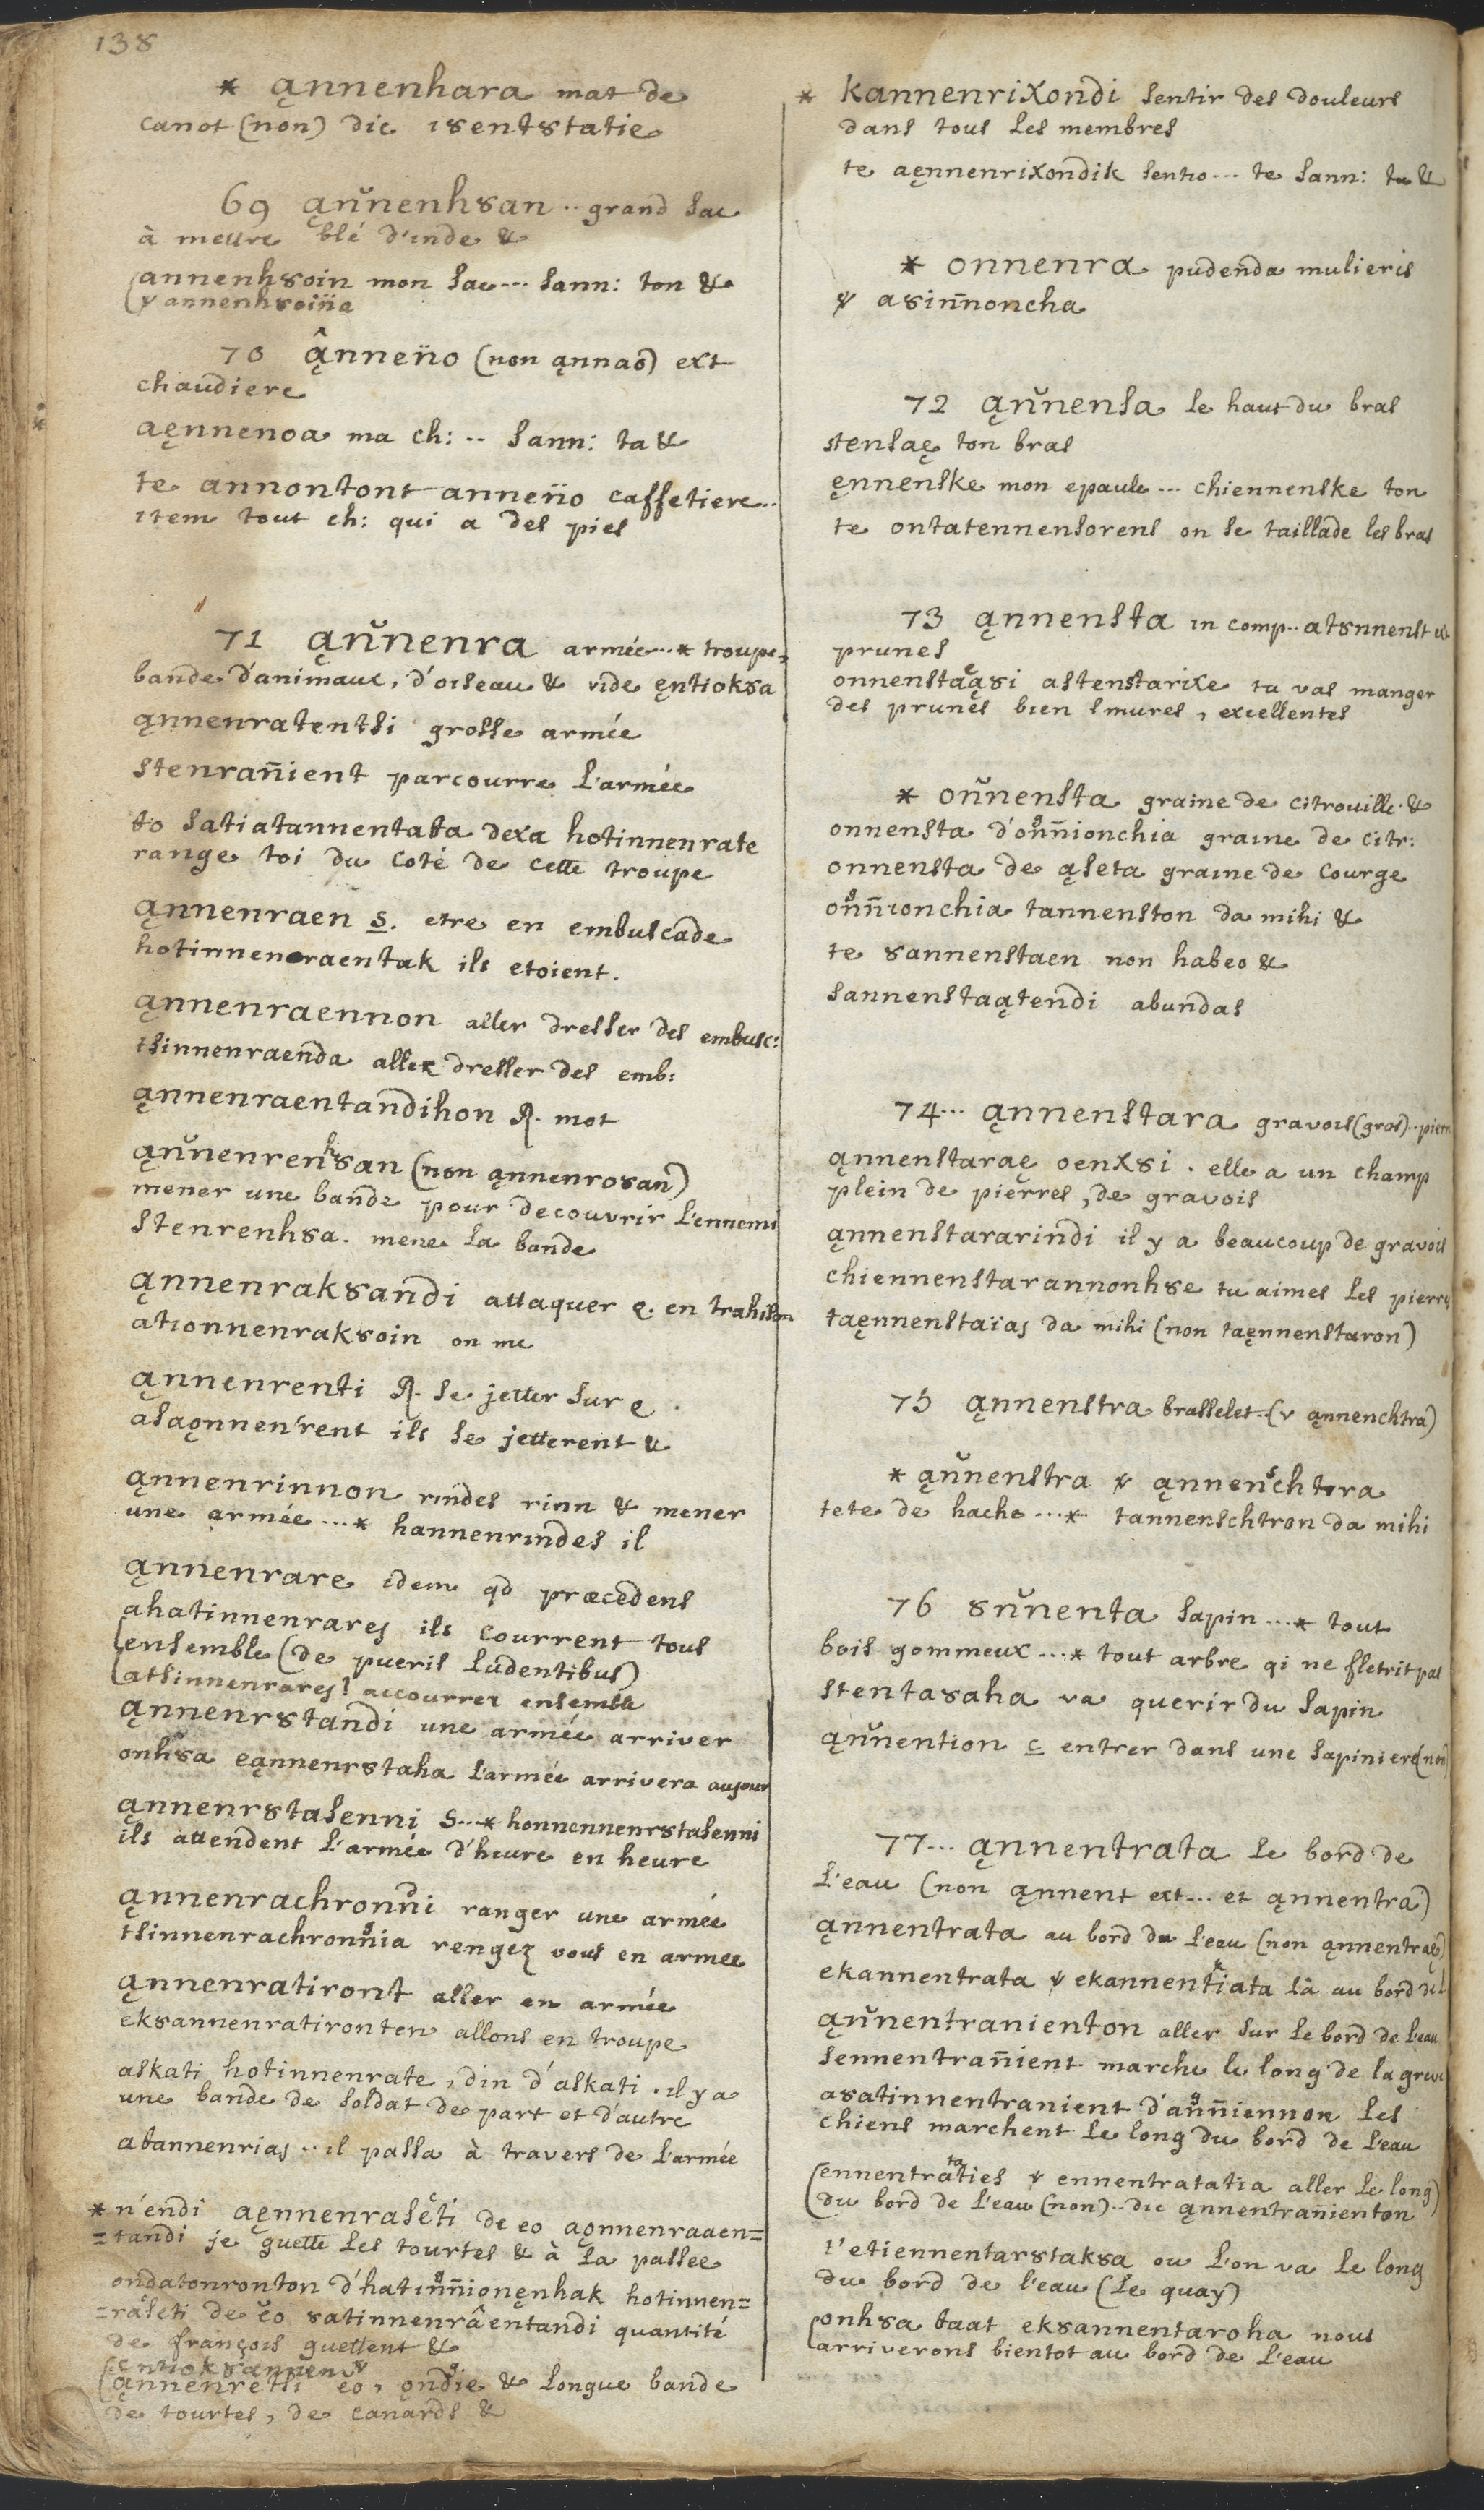 138
* ąnnenhara mat de
canot (non) dic ȣentȣtatie
69 ąnnenhȣan .. grand sac
à mettre blé d'inde &
annenhȣoin mon sac... sann: ton &
v annenhȣoin̈a
70 ąnnen̈o (non ąnnao) ext
chaudiere
aęnnenoa ma ch: .. sann: ta &
te annontont annen̈o caffetiere..
item tout ch: qui a des pies
71 ąnnenra armée...* troupe,
bande d'animaux, d'oiseau & vide ęntiokȣa
ąnnenratentsi grosse armée
stenran̄ient parcourre l'armée
to satiatannentata dexa hotinnenrate
range toi du coté de cette troupe
ąnnenraen S. etre en embuscade
hotinnenraentak ils etoient.
ąnnenraennon aller dresser des embusc:
tsinnenraenda aller dresser des emb:
ąnnenraentandihon R. mot
ąnnenrenhȣan (non ąnnenroȣan)
mener une bande pour decouvrir l'ennemi
stenrenhȣa. mene la bande
ąnnenrakȣandi attaquer q. en trahison
ationnenrakȣoin on me
ąnnenrenti R. se jetter sur q.
asaǫnnenrent ils se jetterent &
ąnnenrinnon rindes rinn & mener
une armée ...* hannenrindes il
ąnnenrare idem qd præcedens
ahatinnenrares ils courrent tous
ensemble (de pueris ludentibus)
atsinnenrares! accourrez ensemble
ąnnenrȣtandi une armée arriver
onhȣa eąnnenrȣtaha l'armée arrivera aujour
ąnnenrȣtasenni S...* honnennenrȣtasenni
ils attendent l'armée d'heure en heure
ąnnenrachronni ranger une armée
tsinnenrachronnia rengez vous en armee
ąnnenratiront aller en armée
ekȣannenratironten allons en troupe
askati hotinnenrate, din d'askati. il y a
une bande de soldat de part et d'autre
atannenrias .. il passa à travers de l'armée
* n'endi aęnnenraseti de eo aǫnnenraaen=
=tandi je guette les tourtes & à la passee
ondatonronton d'hatinn̄ionęnhak hotinnen=
=raseti de eo ȣatinnenrâentandi quantité
de françois guettent &
entiokȣannen v
ąnnenretsi eo, ǫndie & longue bande
de tourtes, de canards &
* kannenrixondi sentir des douleurs
dans tous les membres
te aęnnenrixondik sentio ... te sann: tu &
* onnenra pudenda mulieris
v aȣinn̄oncha
72 ąnnensa le haut du bras
stensaę ton bras
ęnnenske mon epaule ... chiennenske ton
te ontatennensorens on se taillade les bras
73 ąnnensta in comp.. atȣnnenst
prunes
onnenstaąȣi astenstarixe ta vas manger
des prunes bien mures, excellentes
* onnensta graine de citrouille &
onnensta d'onn̄ionchia graine de citr:
onnensta de ąseta graine de courge
onn̄ionchia tannenston da mihi &
te ȣannenstaen non habeo &
sannenstaątendi abundas
74... ąnnenstara gravois (gros)..pierr
ąnnenstaraę oenxȣi. elle a un champ
plein de pierres, de gravois
ąnnenstararindi il y a beaucoup de gravois
chiennenstarannonhȣe tu aimes les pierres
taęnnenstaïas da mihi (non taęnnenstaron)
75 ąnnenstra brasselet..(v ąnnenchtra)
* ąnnenstra v ąnnenschtora
tete de hache ...* tannenschtron da mihi
76 ȣnnenta sapin ...* tout
bois gommeux ...* tout arbre qi ne fletrit pas
stentaȣaha va querir du sapin
ąnnention c entrer dans une sapiniere (non
77... ąnnentrata le bord de
l'eau (non ąnnent ext... et ąnnentra)
ąnnentrata au bord de l'eau (non ąnnentraę)
ekannentrata v ekannentiata là au bord de l
ąnnentranienton aller sur le bord de l'eau
sennentran̄ient marche le long de la greve
aȣatinnentranient d'ann̄iennon les
chiens marchent le long du bord de l'eau
ennentratatïes v ennentratatia aller le long
du bord de l'eau (non) .. dic ąnnentran̄ienton
t'etiennentarȣtakȣa ou l'on va le long
du bord de l'eau (le quay)
onhȣa taat ekȣannentaroha nous
arriverons bientot au bord de l'eau